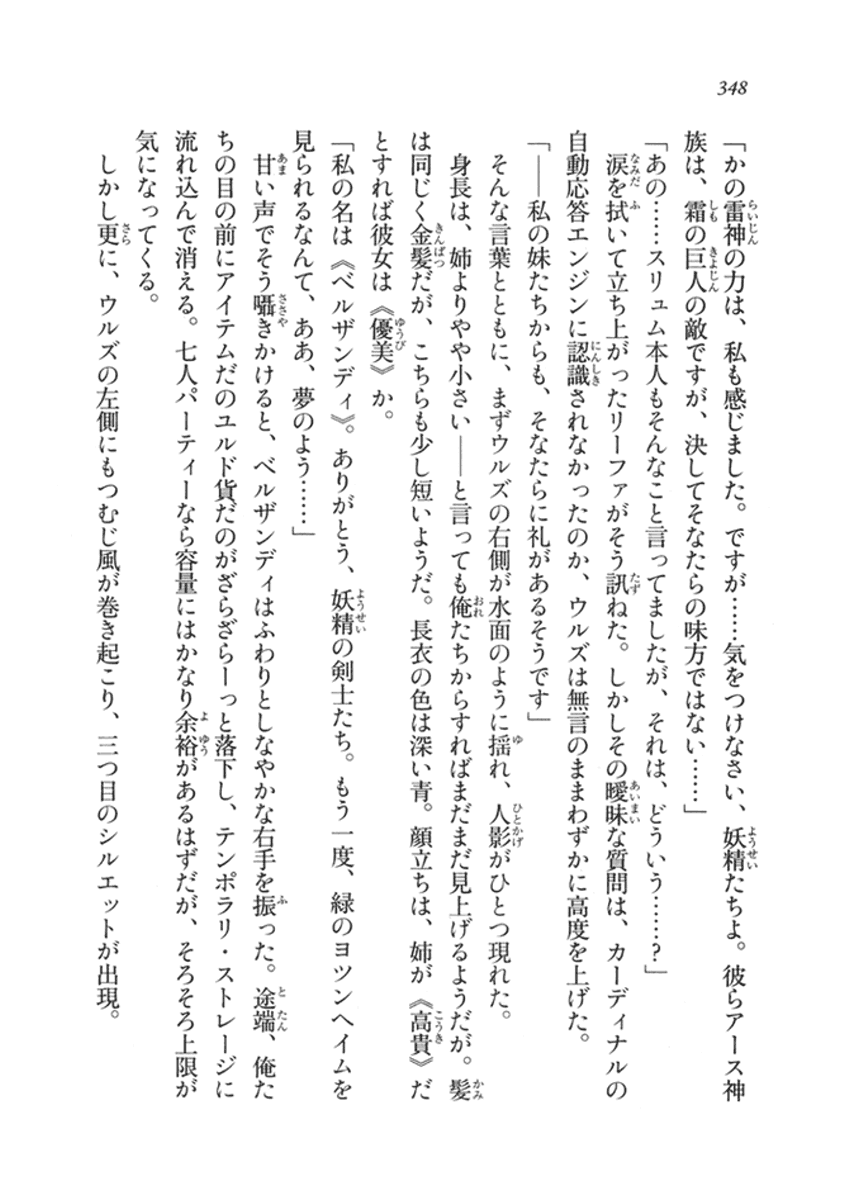 348
「かの雷神の力は、私も感じました。ですが……気をつけなさい、妖精たちよ。彼らアース神
族は、霜の巨人の敵ですが、決してそなたらの味方ではない……」
「あの……スリュム本人もそんなこと言ってましたが、それは、どういう……?」
　涙を拭いて立ち上がったリーファがそう訊ねた。しかしその曖昧な質問は、カーディナルの
自動応答エンジンに認識されなかったのか、ウルズは無言のままわずかに高度を上げた。
「――私の妹たちからも、そなたらに礼があるそうです」
　そんな言葉とともに、まずウルズの右側が水面のように揺れ、人影がひとつ現れた。
　身長は、姉よりやや小さい――と言っても俺たちからすればまだまだ見上げるようだが。髪
は同じく金髪だが、こちらも少し短いようだ。長衣の色は深い青。顔立ちは、姉が《高貴》だ
とすれば彼女は《優美》か。
「私の名は《ベルザンディ》。ありがとう、妖精の剣士たち。もう一度、緑のヨツンヘイムを
見られるなんて、ああ、夢のよう……」
　甘い声でそう囁きかけると、ベルザンディはふわりとしなやかな右手を振った。途端、俺た
ちの目の前にアイテムだのユルド貨だのがざらざらーっと落下し、テンポラリ・ストレージに
流れ込んで消える。七人パーティーなら容量にはかなり余裕があるはずだが、そろそろ上限が
気になってくる。
　しかし更に、ウルズの左側にもつむじ風が巻き起こり、三つ目のシルエットが出現。